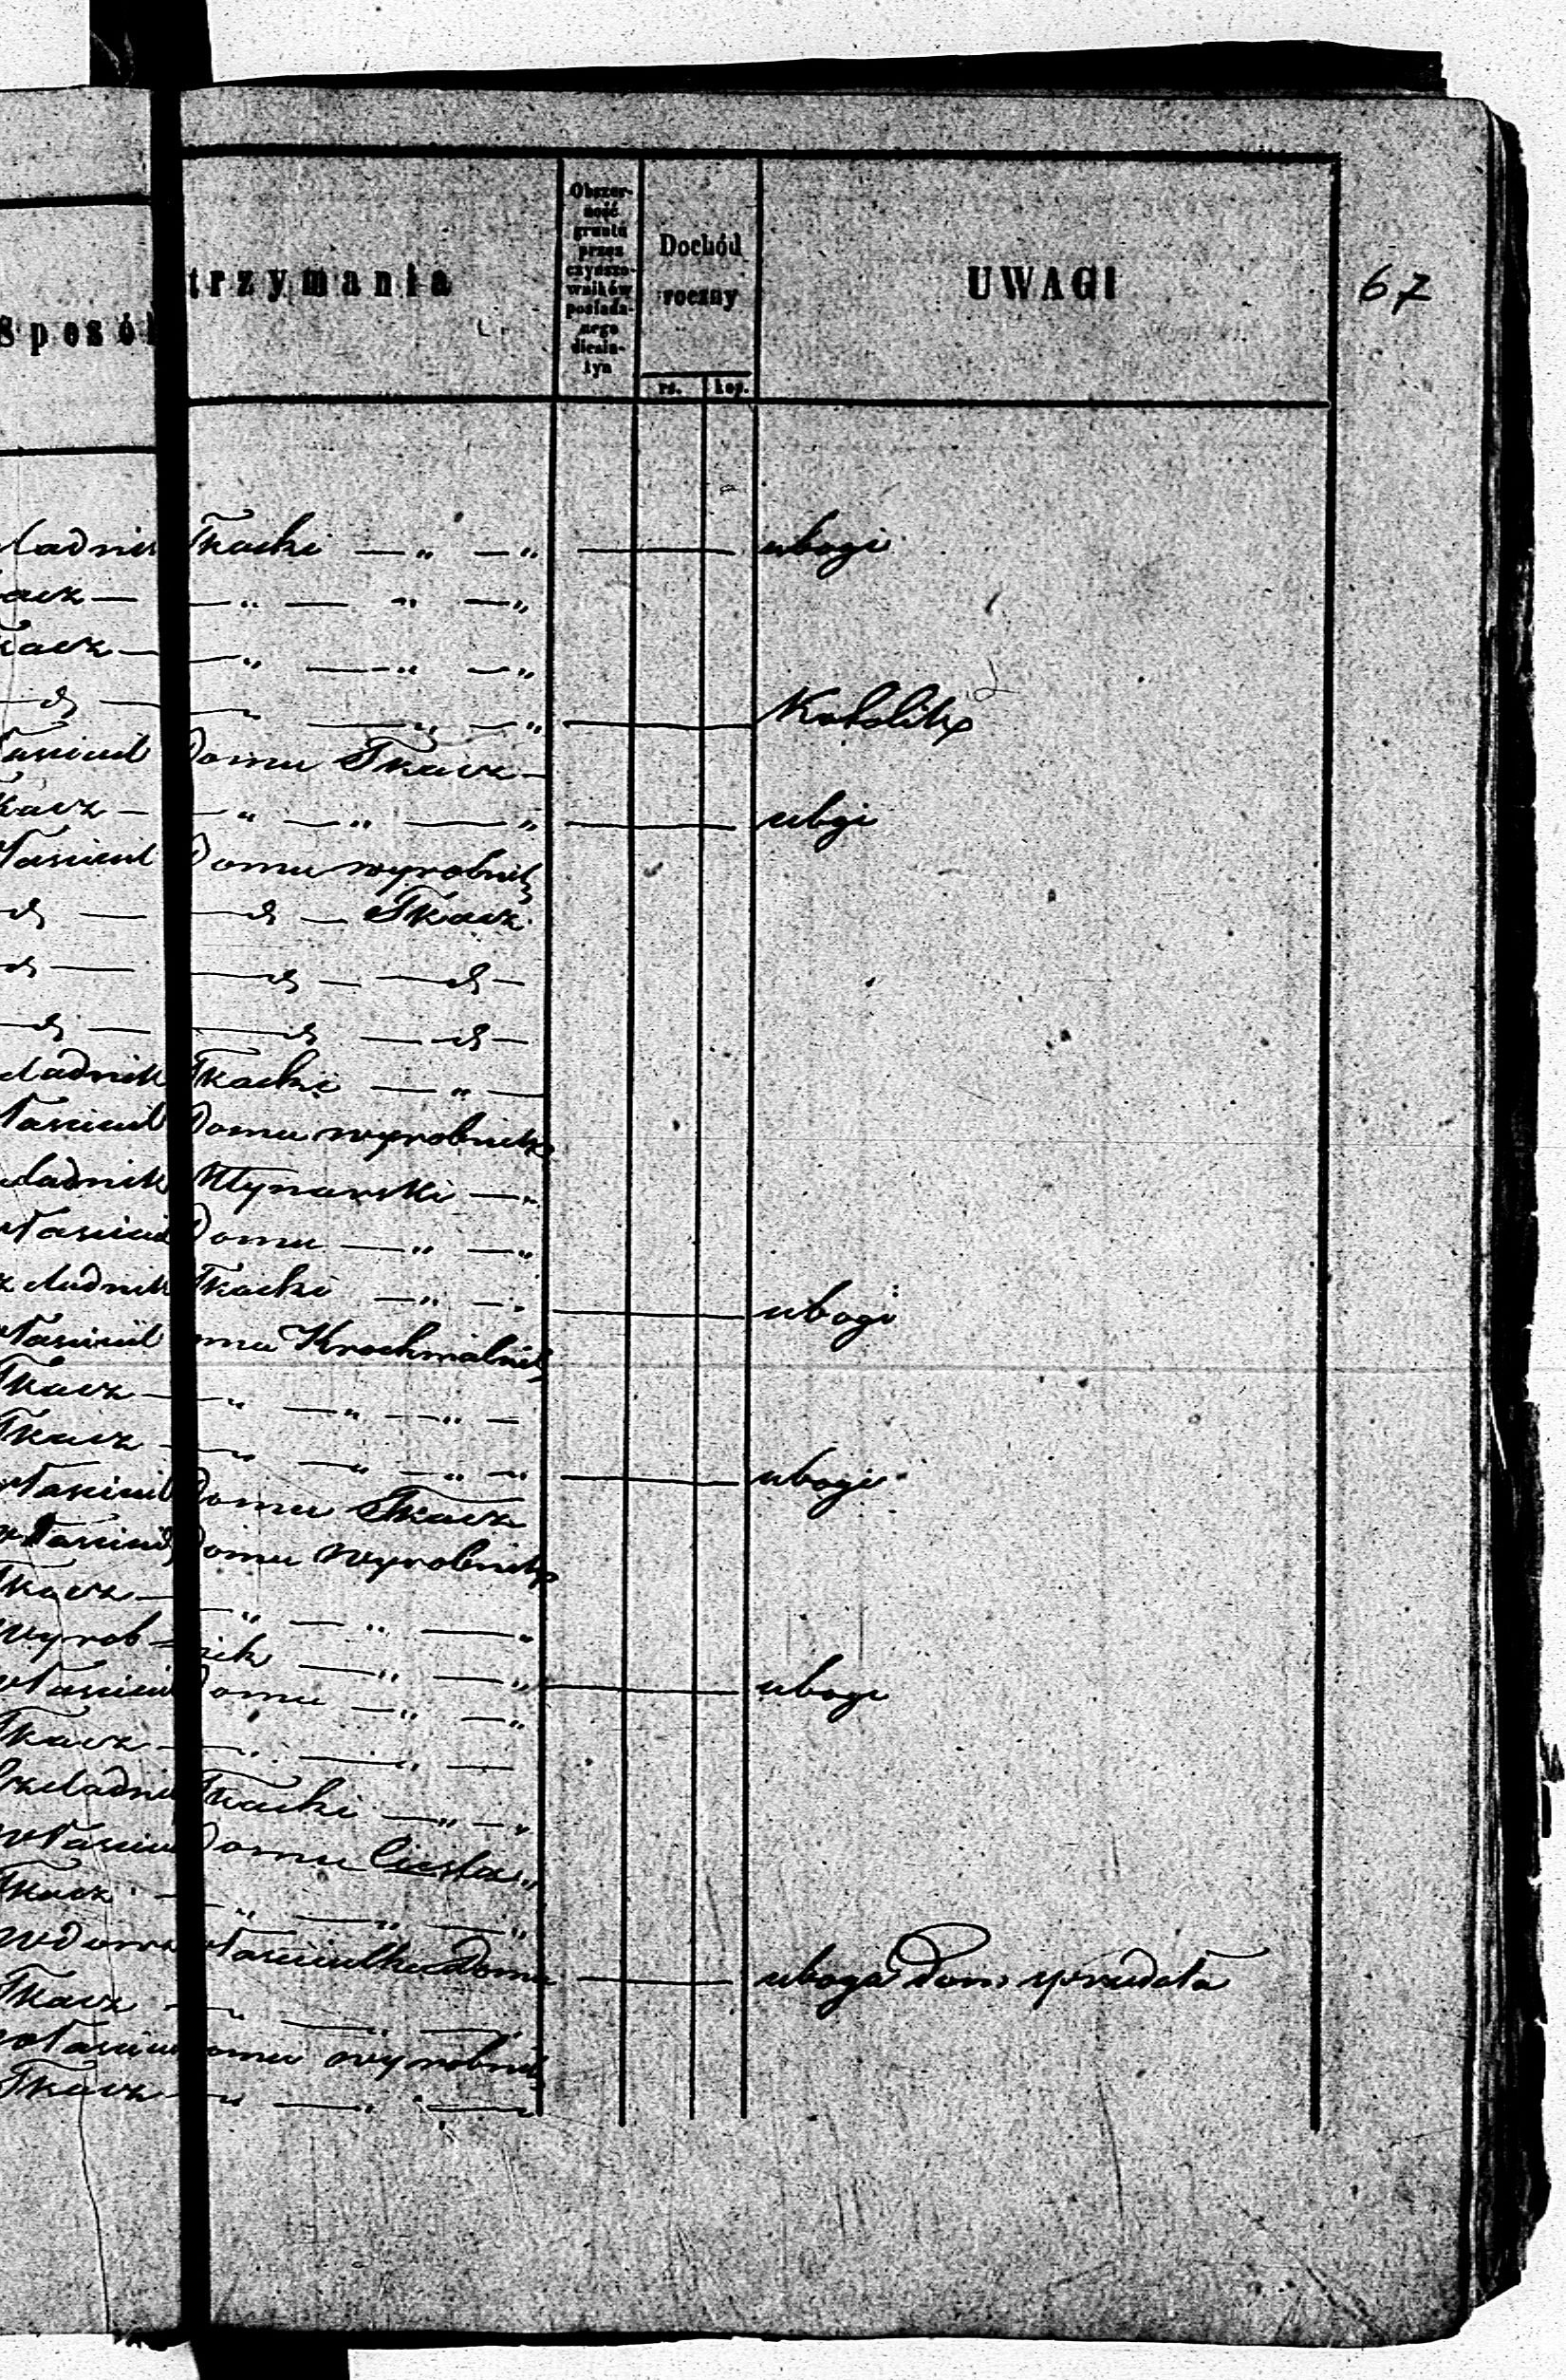 Sposób trzymania
Obszer-
ność
gruntu
przez
czynszo-
wników
posiada-
nego
diesia-
tyn
Dochód
roczny
rs. kop.
UWAGI
67
ladnik Tkacki — „ — „ — ubogi
acz — — „ — „ — „
Tkacz — — „ — „ — „
— d — — „ — „ — „ — Katolik
łasciciel Domu Tkacz —
Tkacz — — „ — „ — „ — ubgi
łasciciel Domu wyrobnik
d — — d — Tkacz
d — — d — — d —
— d — — d — — d —
eladnik Tkacki — „ —
łasciciel Domu wyrobnik
eladnik Młynarski — „
własciciel Domu — „ — „
zeladnik Tkacki — „ — „ — ubogi
własciciel omu Krochmalnik
Tkacz — — „ — „ — „ —
Tkacz — — „ — „ — „ — „ — ubogi
własciciel Domu Tkacz
własciciel Domu wyrobnik
Tkacz — — „ — „ — „
wyrob=nik — „ — „ — ubogi
własciciel Domu — „ — „
Tkacz — — „ — „ —
Czeladnik Tkacki — „ — „
własciciel Domu Ciesla „
Tkacz — — „ — „ — „
Wdowa własciicielka Domu — uboga Dom sprzedała
Tkacz — — „ — „ — „
własciciel omu wyrobnik
Tkacz — — „ — „ — „